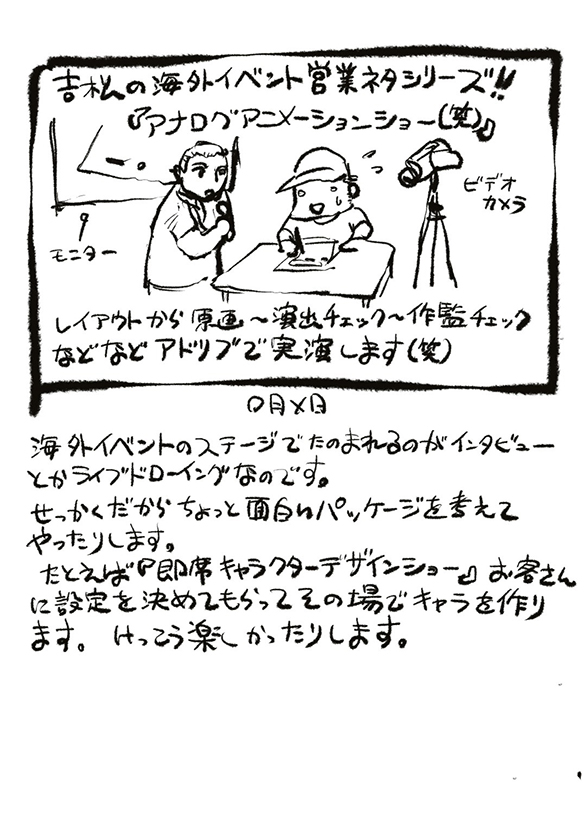 吉松の海外イベント営業ネタシリーズ!!
『アナログアニメーションショー(笑)』
ビデオ
カメラ
モニター
レイアウトから原画〜演出チェック〜作監チェック
などなどアドリブで実演します(笑)
○月×日
海外イベントのステージでたのまれるのがインタビュー
とかライブドローイングなのです。
せっかくだからちょっと面白いパッケージを考えて
やったりします。
たとえば『即席キャラクターデザインショー』お客さん
に設定を決めてもらってその場でキャラを作り
ます。けっこう楽しかったりします。